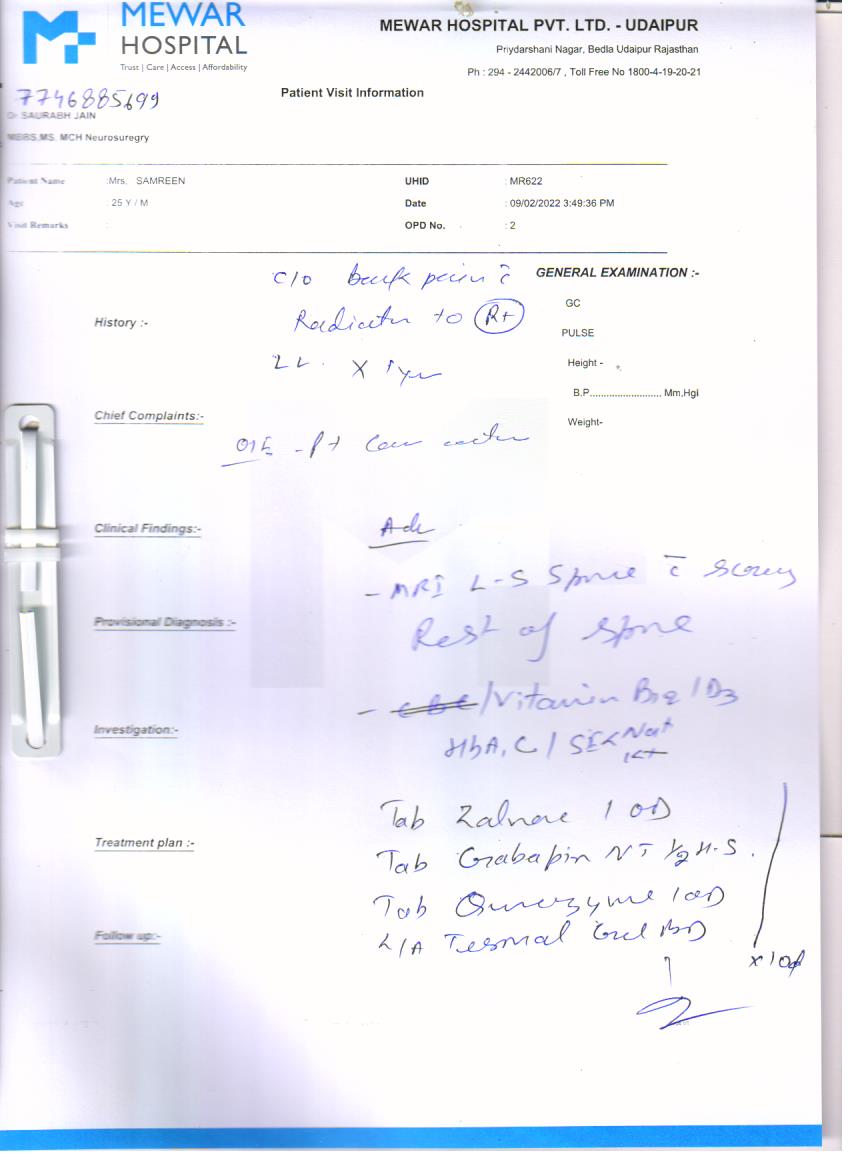 MEWAR
HOSPITAL
Trust | Care | Access | Affordability
MEWAR HOSPITAL PVT. LTD. - UDAIPUR
Priydarshani Nagar, Bedla Udaipur Rajasthan
Ph : 294 - 2442006/7 , Toll Free No 1800-4-19-20-21
Patient Visit Information
7746885699
Dr SAURABH JAIN
MBBS,MS, MCH Neurosuregry
Patient Name :Mrs. SAMREEN UHID : MR622
Age : 25 Y / M Date : 09/02/2022 3:49:36 PM
Visit Remarks : OPD No. : 2
GENERAL EXAMINATION :-
C/O back pain c̄
GC
History :- Radiation to Rt
PULSE
Height -
LL X 1 yr
B.P.......................... Mm,Hgl
Chief Complaints:-
Weight-
O/E - Pt
Clinical Findings:- Adv
- MRI L-S Spine c̄
Provisional Diagnosis :- Rest of spine
- CBC/Vitamin B12/D3
Investigation:-
HbA1C /
Tab 1 OD
Treatment plan :-
Tab Gabapin NT 1/2 H-S
Tab 1 OD
Follow up:-
L/A Gel BD
x 10d